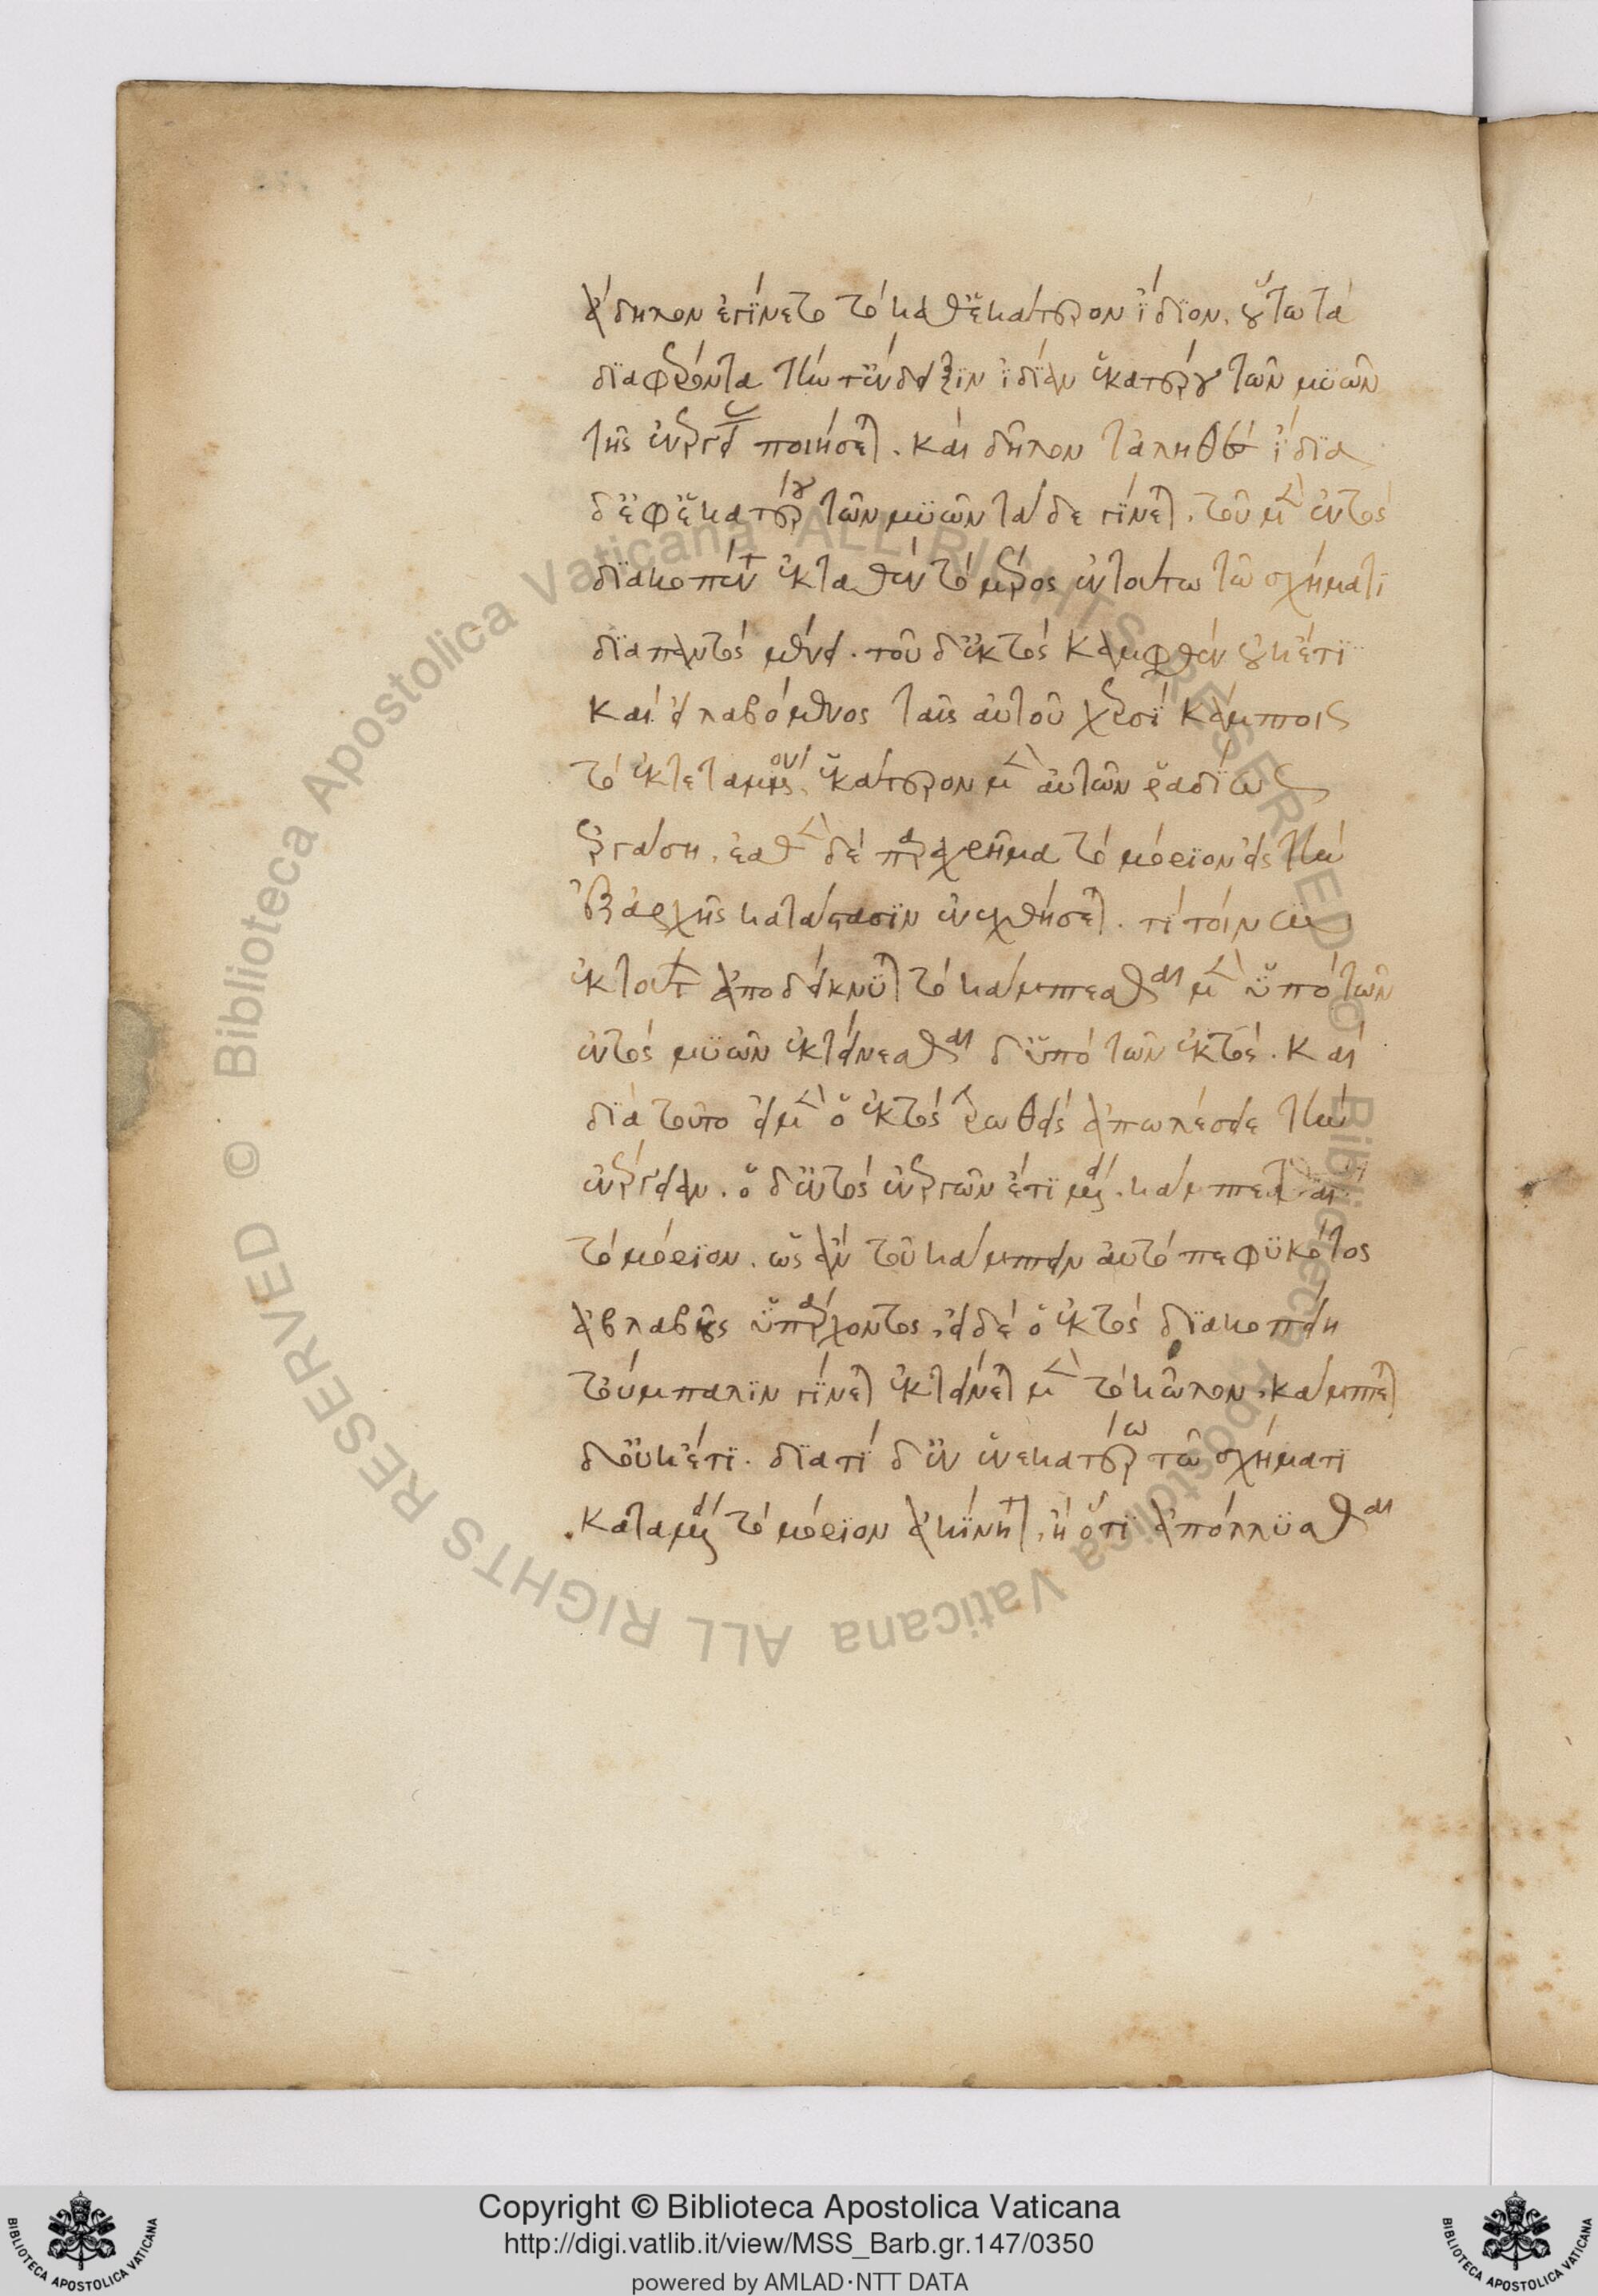 ἄδηλον ἐγίνετο τὸ καθ' ἑκάτερον ἴδιον. οὕτω τὰ
διαφέροντα τὴν τ' ἔνδειξιν ἰδίαν ἑκατέρου τῶν μυῶν
τῆς ἐνεργείας ποιήσεται. καὶ δῆλον τἀληθεῖ ἰδία
δὲ ἐφ' ἑκατέρου τῶν μυῶν τάδε γίνεται. τοῦ μὲν ἐντὸς
διακοπέντος ἐκταθὲν τὸ μέρος ἐν τούτω τῶ σχήματι
διαπαντὸς μένει. τοῦ δ' ἐκτὸς καμφθὲν οὐκέτι
καὶ εἰ λαβόμενος ταῖς αὑτοῦ χερσὶ κάμποις
τὸ ἐκτεταμένον, ἑκάτερον μὲν αὐτῶν ῥαδίως
ἐργάση, ἐασθὲν δὲ παραχρῆμα τὸ μόριον εἰς τὴν
ἐξ ἀρχῆς κατάστασιν ἐνεχθήσεται. τί τοίνυν
ἐκ τούτων ἀποδείκνυται τὸ κάμπτεσθαι μὲν ὑπὸ τῶν
ἐντὸς μυῶν ἐκτείνεσθαι δ' ὑπὸ τῶν ἐκτός. καὶ
διὰ τοῦτο εἰ μὲν ὁ ἐκτὸς τρωθεὶς ἀπωλέσειε τὴν
ἐνέργειαν. ὁ δ' ἐντὸς ἐνεργῶν ἔτι μένει. κάμπτεται
τὸ μόριον. ὡς ἂν τοῦ κάμπτειν αὐτὸ πεφυκότος
ἀβλαβοῦς ὑπάρχοντος, εἰ δὲ ὁ ἐκτὸς διακοπείη
τοὔμπαλιν γίνεται ἐκτείνεται μὲν τὸ κῶλον, κάμπτεται
δ' οὐκέτι. διατί δ' ἐν ἑνεκατέρω τῶ σχήματι
καταμένει τὸ μόριον ἀκίνητον, ἢ ὅτι ἀπόλλυσθαι
Copyright © Biblioteca Apostolica Vaticana
http://digi.vatlib.it/view/MSS_Barb.gr.147/0350
powered by AMLAD·NTT DATA